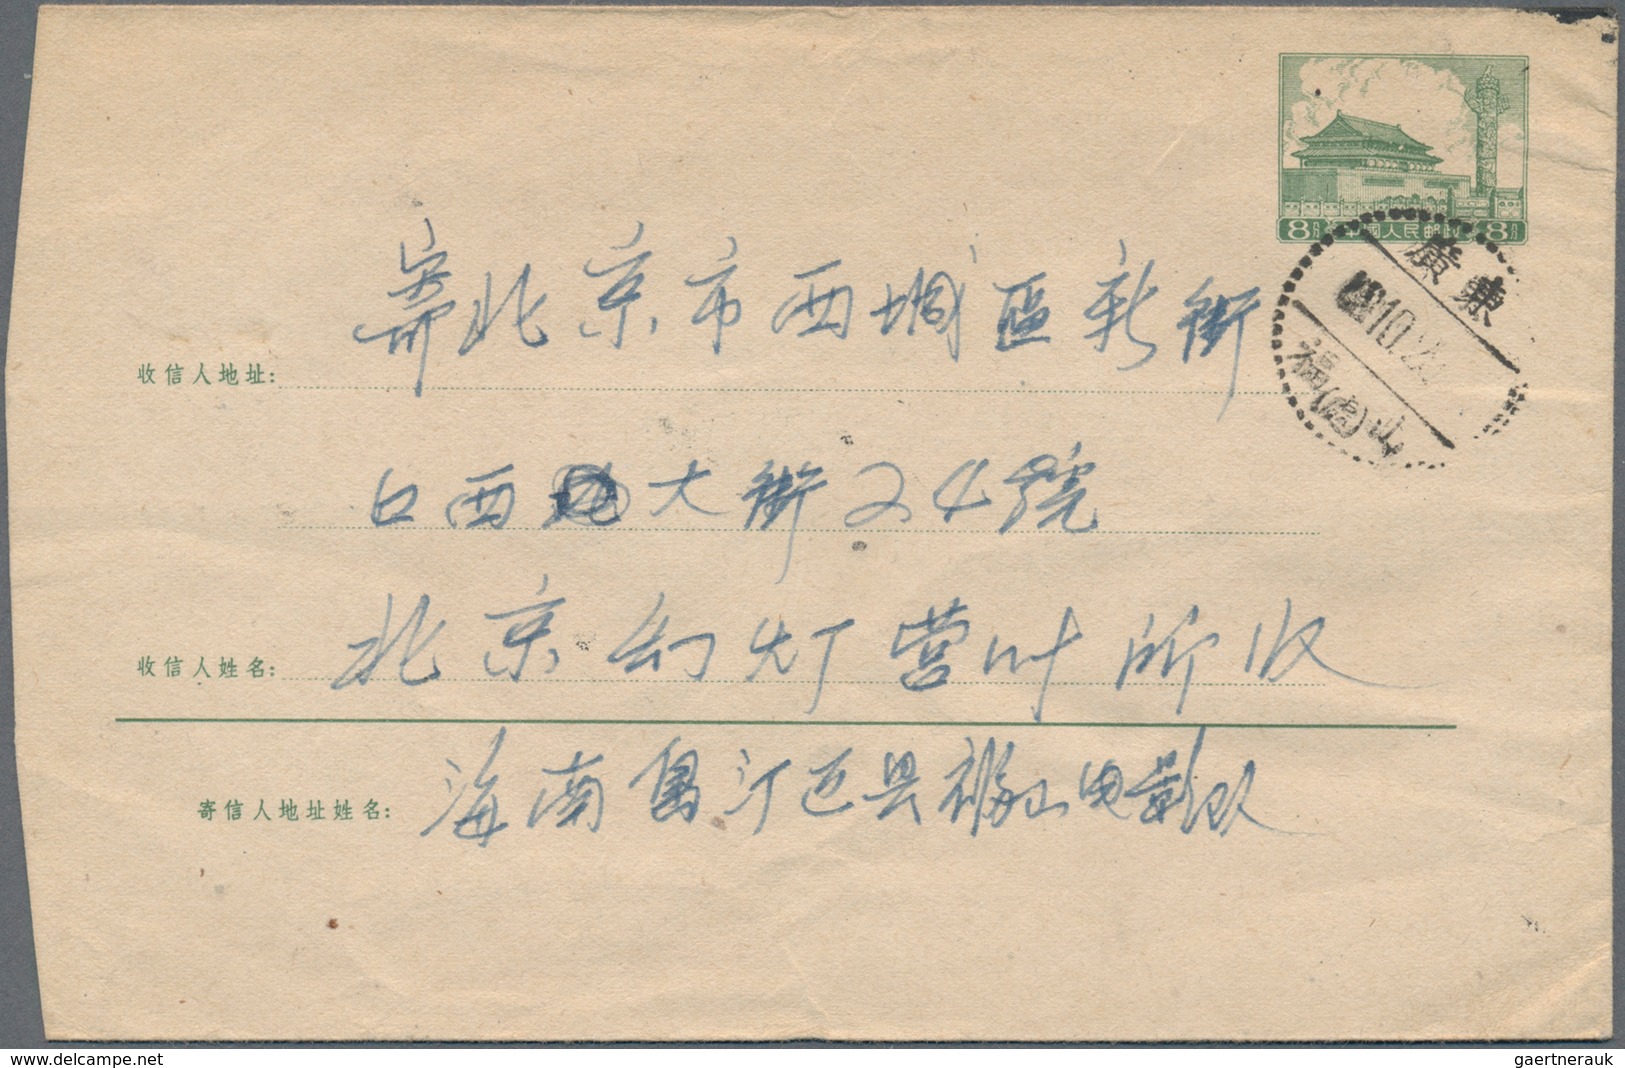 8分 中國人民邮政 8分
廣東
10.2
福(南)山
寄北京市西城區新街
收信人地址:
口西 大街24號
北京幻灯营叶所收
收信人姓名:
海南島 迈县福山电影队
寄信人地址姓名:
delcampe.net
gaertnerauk